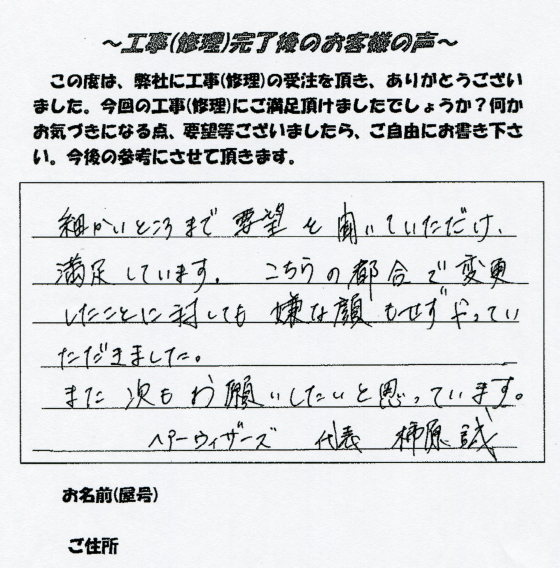 ～工事(修理)完了後のお客様の声～
この度は、弊社に工事(修理)の受注を頂き、ありがとうござい
ました。今回の工事(修理)にご満足頂けましたでしょうか？何か
お気づきになる点、要望等ございましたら、ご自由にお書き下さ
い。今後の参考にさせて頂きます。
細かいところまで要望を聞いていただけ、
満足しています。こちらの都合で変更
したことに対しても嫌な顔もせずやってい
ただきました。
また次もお願いしたいと思っています。
ヘアーウィザーズ 代表 柿原誠
お名前(屋号)
ご住所